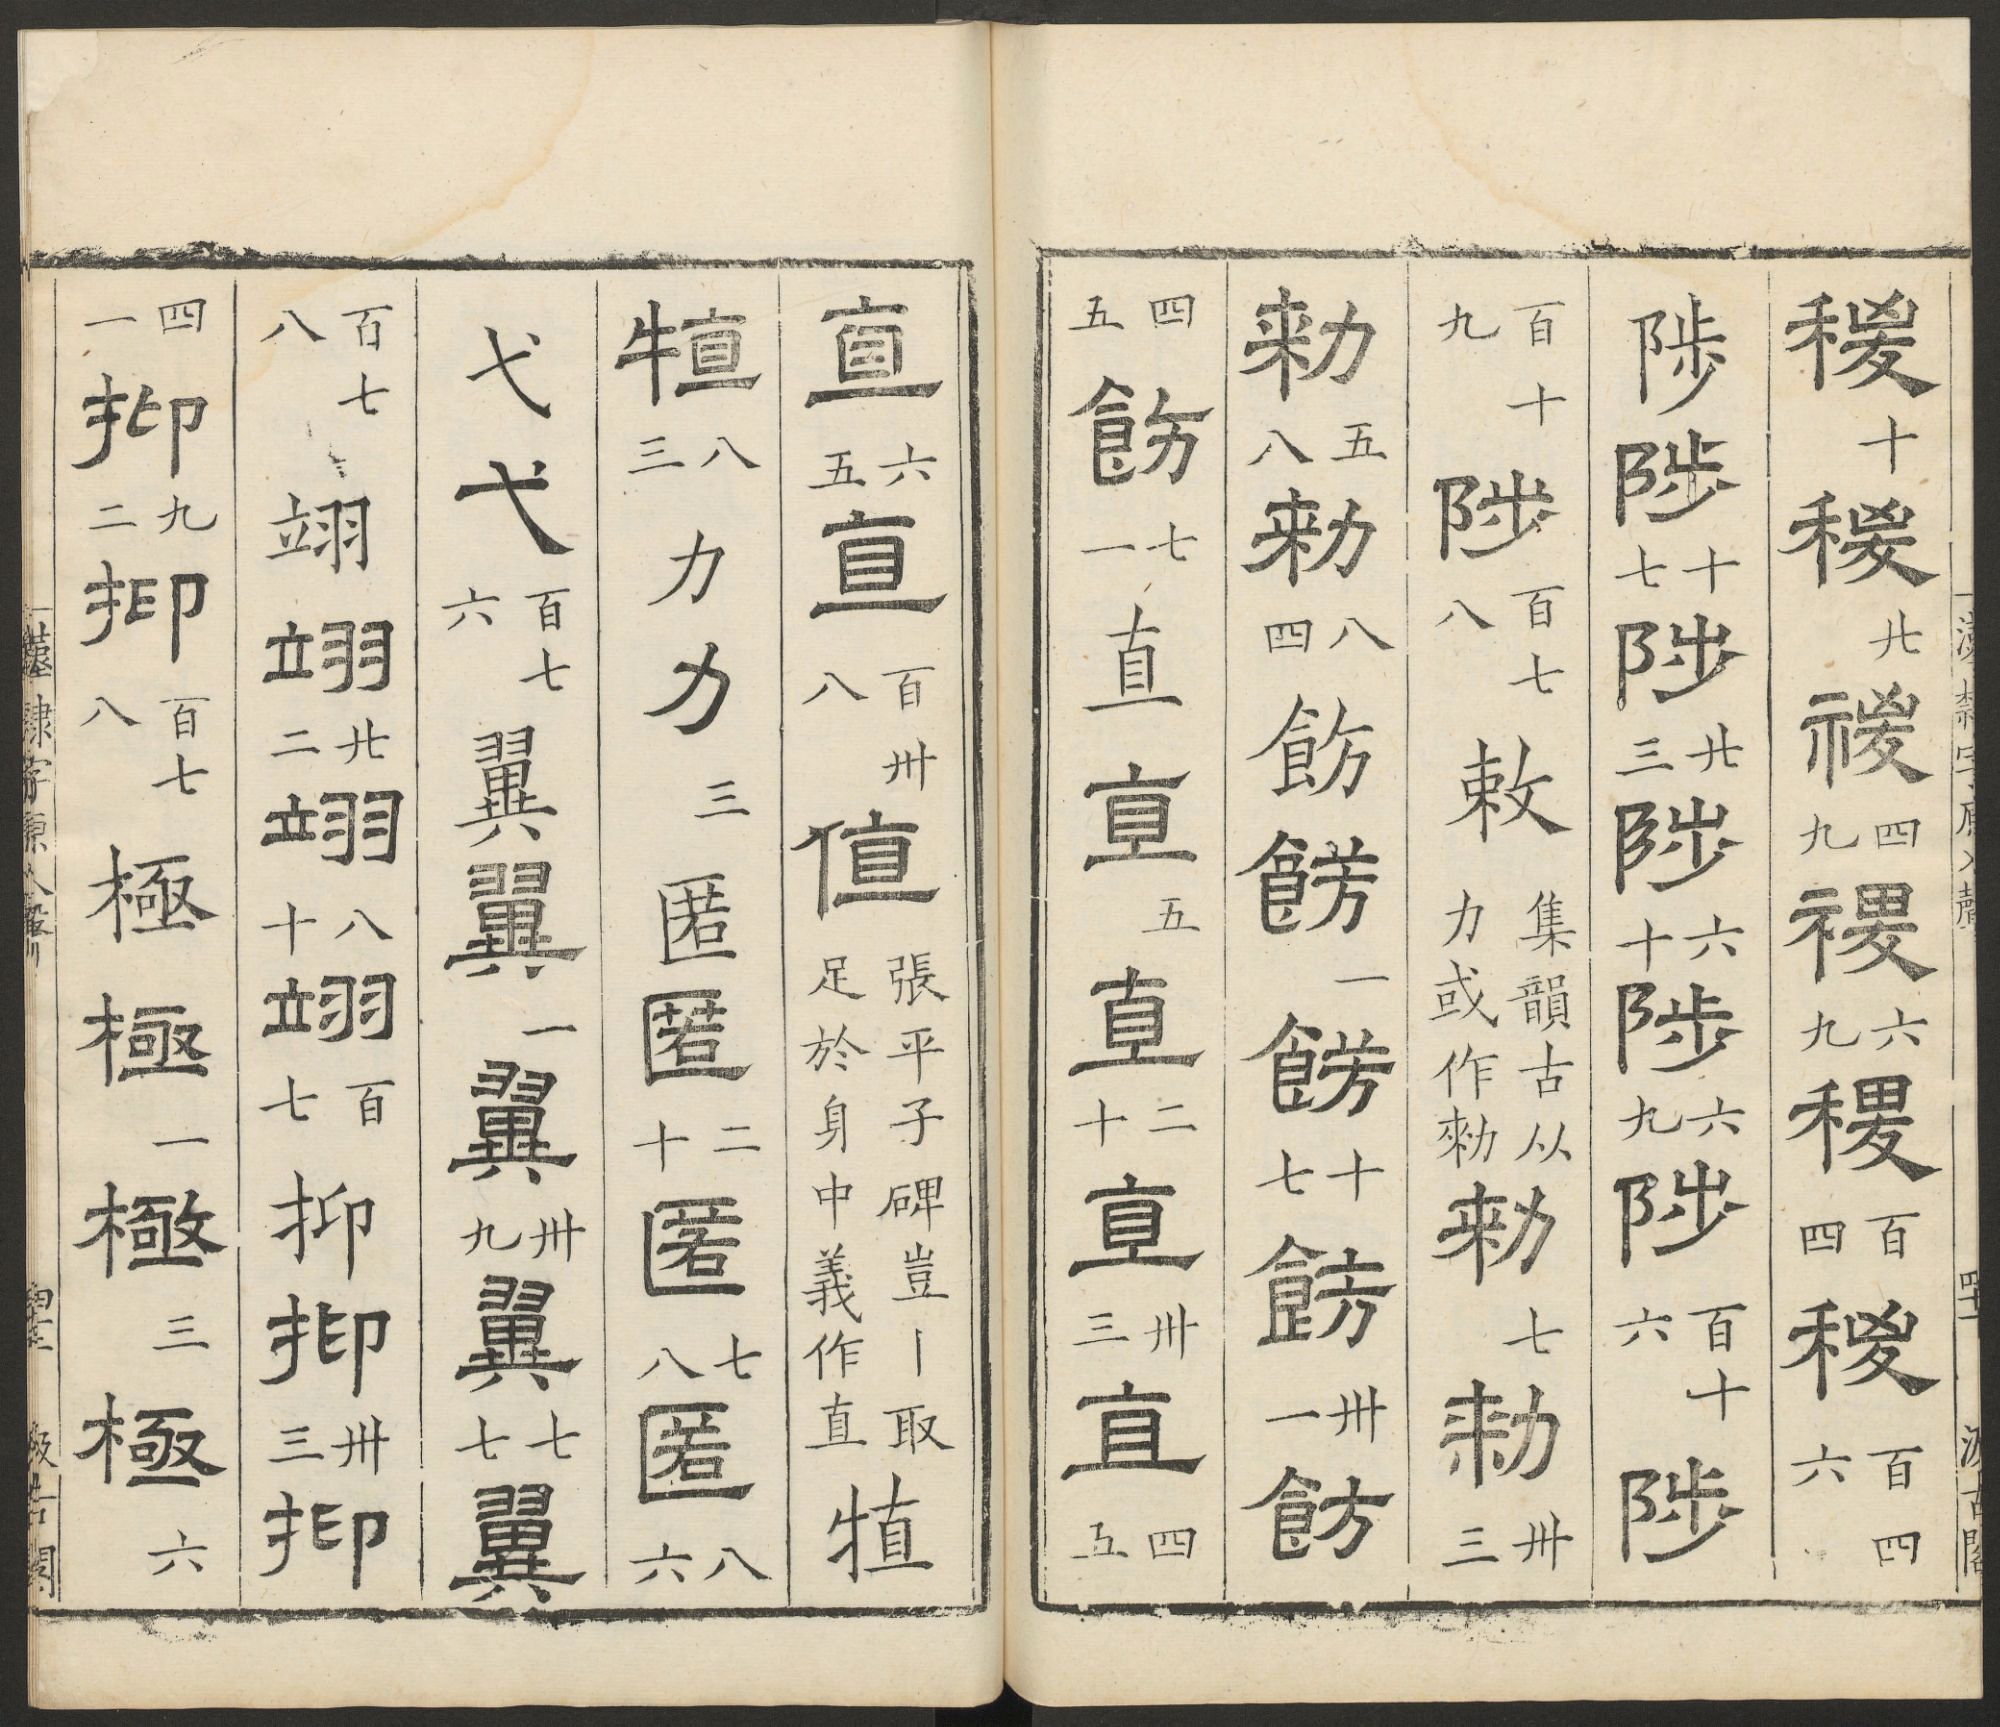 稷十稷廿稷四九稷六九稷百四稷百四六
陟陟十七陟廿三陟六十陟六九陟百十六陟
百十九陟百七八敕集韻古从力或作勑勑七勑卅三
勑五八勑八四飭飭一飭十七飭卅一飭
四五飭七一直直五直二十直卅三直四五
直六五直百卅八值張平子碑豈丨取足於身中義作直犆
犆八三力力三匿匿二十匿七八匿八六
弋弋百七六翼翼一翼卅九翼七七翼
百七八翊翊廿二翊八十翊百七抑抑卅三抑
四一抑九二抑百七八極極一極三極六
漢隸字原入聲
汲古閣